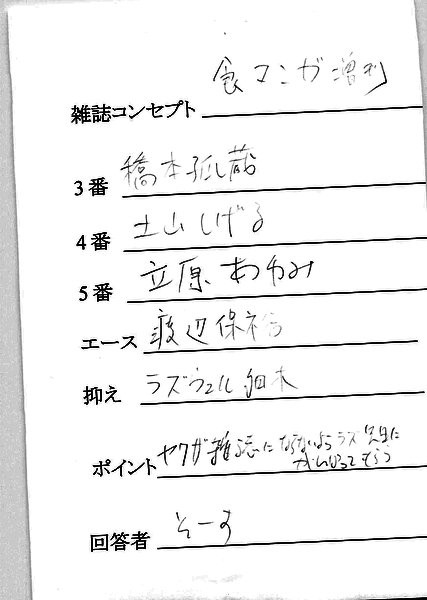 食マンガ増刊
雑誌コンセプト
3番 橋本孤蔵
4番 土山しげる
5番 立原あゆみ
エース 渡辺保裕
抑え ラズウェル細木
ポイント ヤクザ雑誌にならないようラズ先生に
がんばってもらう
回答者 そーす